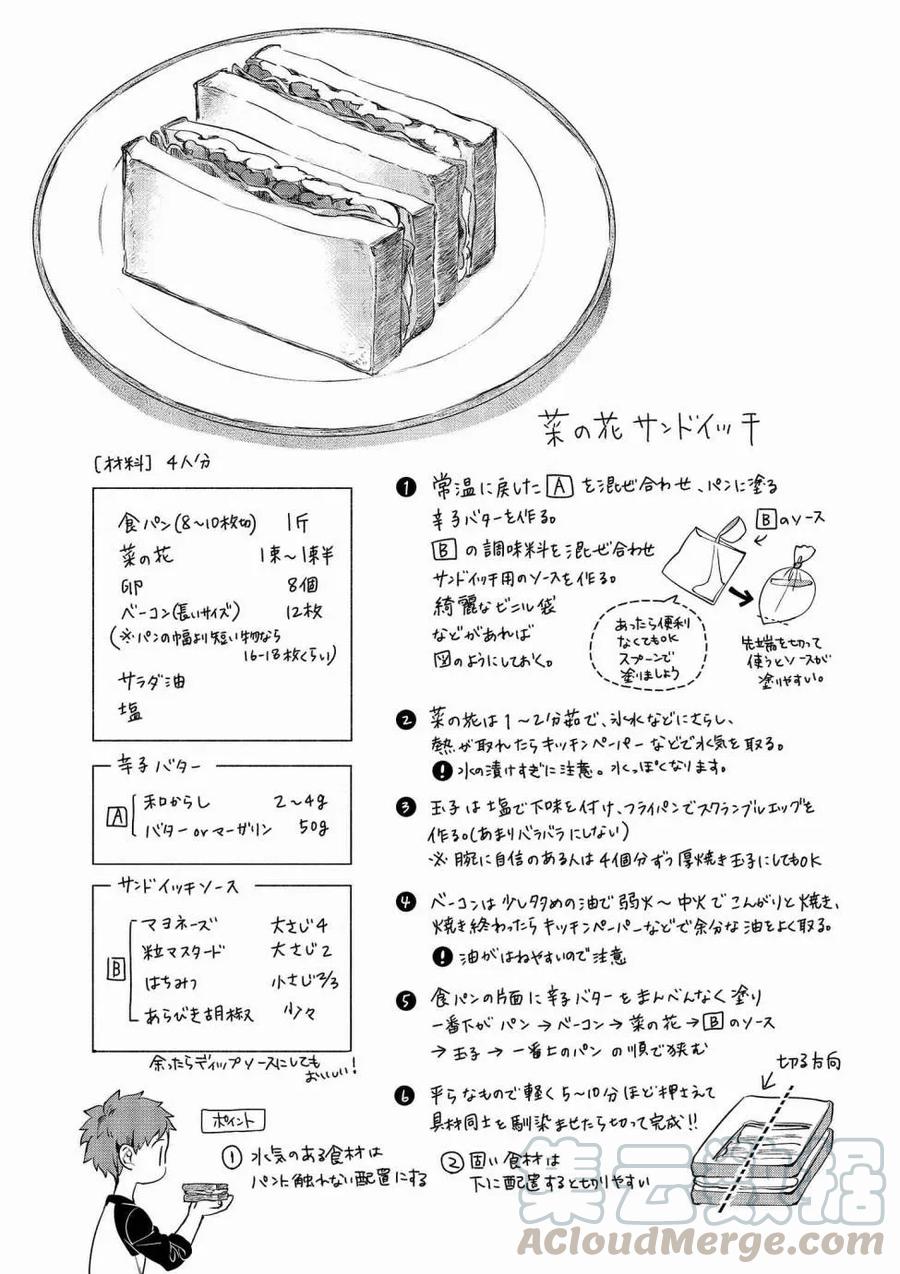 菜の花サンドイッチ
[材料] 4人分
食パン(8~10枚切) 1斤
菜の花 1束~1束半
卵 8個
ベーコン(長いサイズ) 12枚
(※パンの幅より短い物なら
16-18枚くらい)
サラダ油
塩
辛子バター
A
和からし 2~4g
バターorマーガリン 50g
サンドイッチソース
B
マヨネーズ 大さじ4
粒マスタード 大さじ2
はちみつ 小さじ2/3
あらびき胡椒 少々
余ったらディップソースにしても
おいしい!
1 常温に戻したAを混ぜ合わせ、パンに塗る
辛子バターを作る。
Bの調味料を混ぜ合わせ
サンドイッチ用のソースを作る。
綺麗なビニル袋
などがあれば
図のようにしておく。
Bのソース
あったら便利
なくてもOK
スプーンで
塗りましょう
先端を切って
使うとソースが
塗りやすい。
2 菜の花は1~2分茹で、氷水などにさらし、
熱が取れたらキッチンペーパーなどで水気を取る。
! 水の漬けすぎに注意。水っぽくなります。
3 玉子は塩で下味を付け、フライパンでスクランブルエッグを
作る。(あまりバラバラにしない)
※腕に自信のある人は4個分ずつ厚焼き玉子にしてもOK
4 ベーコンは少し多めの油で弱火~中火でこんがりと焼き、
焼き終わったらキッチンペーパーなどで余分な油をよく取る。
! 油がはねやすいので注意
5 食パンの片面に辛子バターをまんべんなく塗り
一番下がパン→ベーコン→菜の花→Bのソース
→玉子→一番上のパンの順で挟む
6 平らなもので軽く5~10分ほど押さえて
具材同士を馴染ませたら切って完成!!
切る方向
ポイント
① 水気のある食材は
パンに触れない配置にする
② 固い食材は
下に配置すると切りやすい
集云数据
ACloudMerge.com